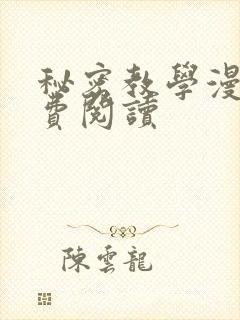 秘密教學漫
費閱讀
陳雲龍